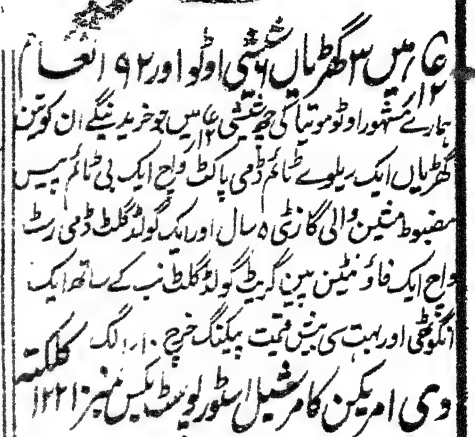 ۱۲/ میں ۳ گھڑیاں ۶ شیشی اوٹو اور ۹۲ انعام
ہمارے مشہور اوٹو موتیا کی چھ شیشی ۱۲/ میں جو خریدینگے ان کو تین
گھڑیاں ایک ریلوے ٹائم ڈمی پاکٹ واچ ایک بی ٹائم پیس
مضبوط مشین والی گارنٹی ۵ سال اور ایک گولڈ گلٹ ڈمی رسٹ
واچ ایک فاؤنٹین پین گریٹ گولڈ گلٹ نب کے ساتھ ایک
انگوٹھی اور بہت سی بیش قیمت پیکنگ خرچ ۱۰/ الگ
دی امریکن کامرشیل اسٹور پوسٹ بکس نمبر ۱۲۲۱ کلکتہ